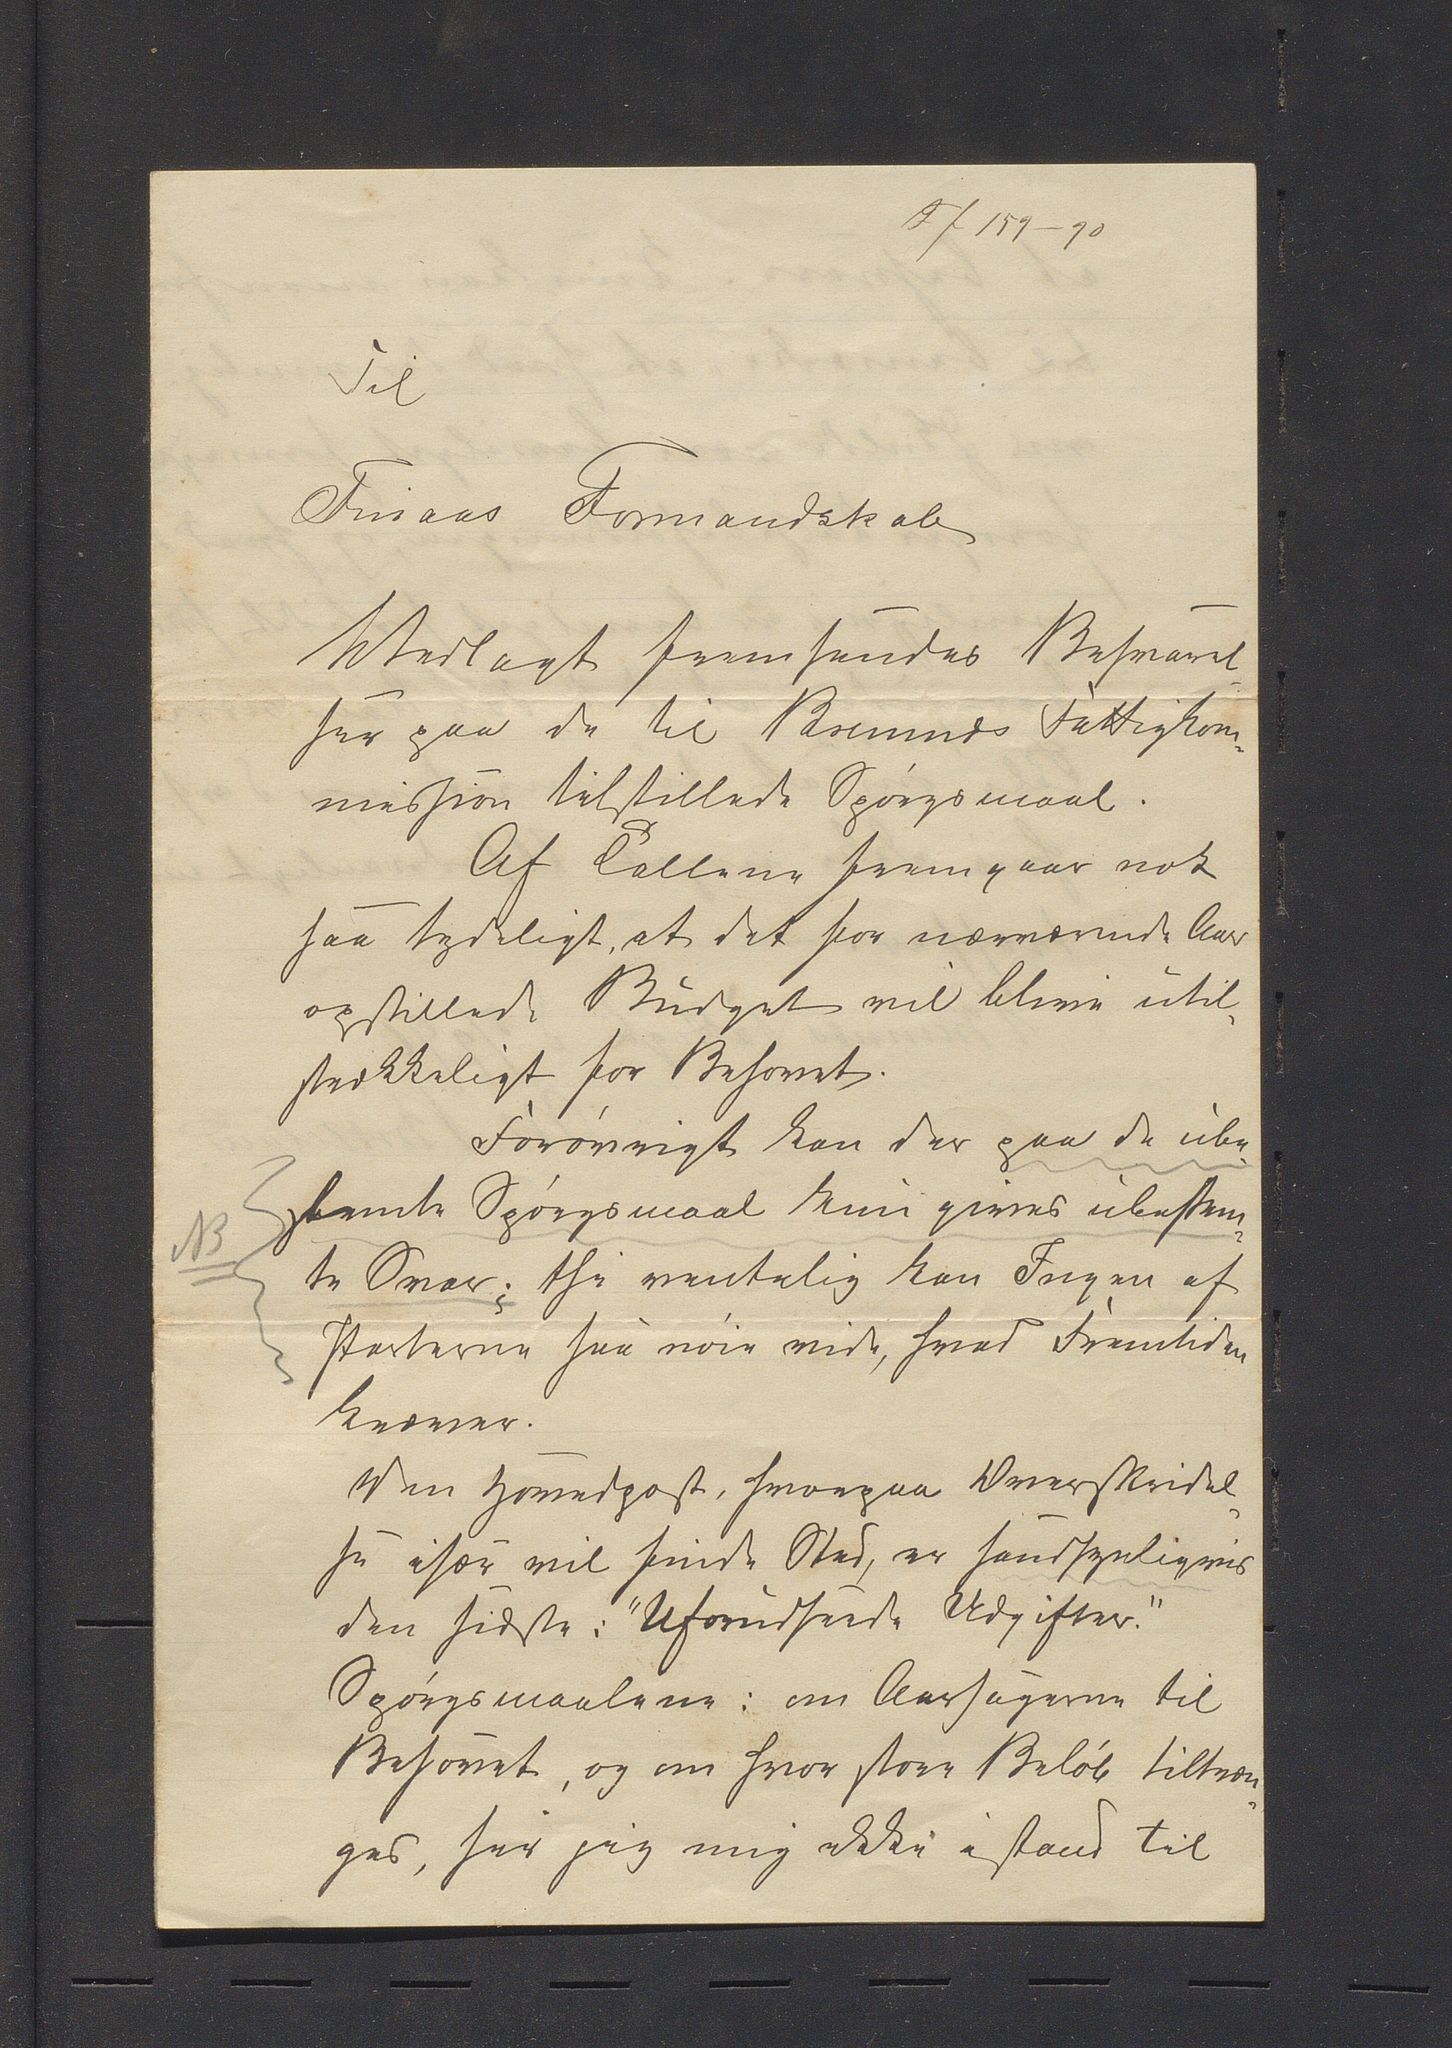 F 159-90
Til
Finaas Formandskab
Vedlagt fremsendes Besvarel-
ser paa de til Bremnes Fattigkom-
mission tilstillede Spörgsmaal.
Af Tallene fremgaar nok
saa tydeligt, at det for nærværende Aar
opstillede Budget vil blive util-
strækkeligt for Behovet.
Forövrigt kan der paa de ube-
stemte Spörgsmaal kun gives ubestem-
te Svar; thi ventelig kan Ingen af
Parterne saa nöie vide, hvad Fremtiden
kræver.
NB
Den Hovedpost, hvorpaa Overskridel-
se især vil finde Sted, er sandsynligvis
den sidste: "Uforudseede Udgifter."
Spörgsmaalene: om Aarsagerne til
Behovet, og om hvor store Belöb tiltræn-
ges, ser jeg mig ikke istand til